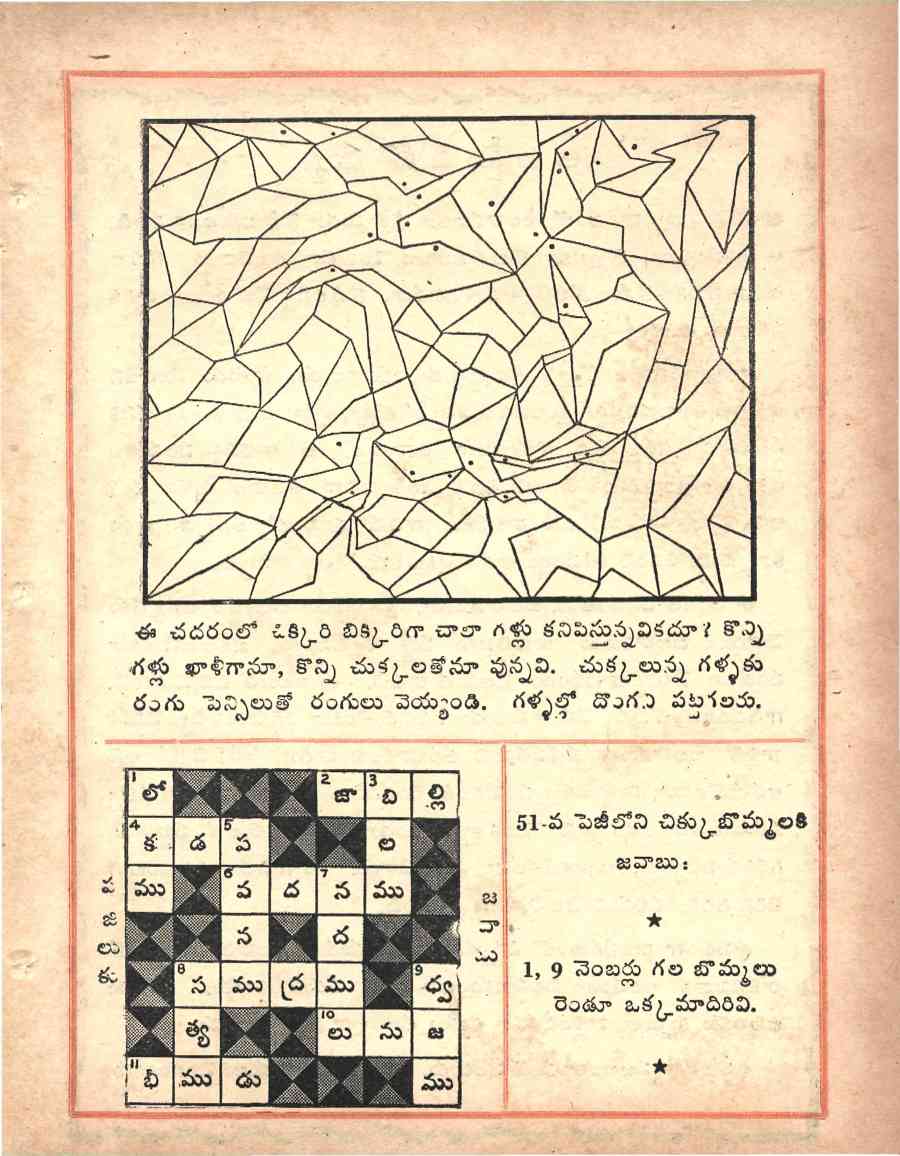 ఈ చదరంలో చిక్కిరి బిక్కిరిగా చాలా గళ్లు కనిపిస్తున్నవికదూ? కొన్ని
గళ్లు ఖాళీగానూ, కొన్ని చుక్కలతోనూ వున్నవి. చుక్కలున్న గళ్ళకు
రంగు పెన్సిలుతో రంగులు వెయ్యండి. గళ్ళల్లో దొంగని పట్టగలరు.
1 లో 2 జా 3 బి ల్లి
4 క డ 5 ప ల
ము 6 వ ద 7 న ము
న ద
8 స ము ద్ర ము 9 ధ్వ
త్య 10 లు ను జ
11 భీ ము డు ము
పజిలుకు
జవాబు
51-వ పేజీలోని చిక్కుబొమ్మలకి
జవాబు:
★
1, 9 నెంబర్లు గల బొమ్మలు
రెండూ ఒక్కమాదిరివి.
★